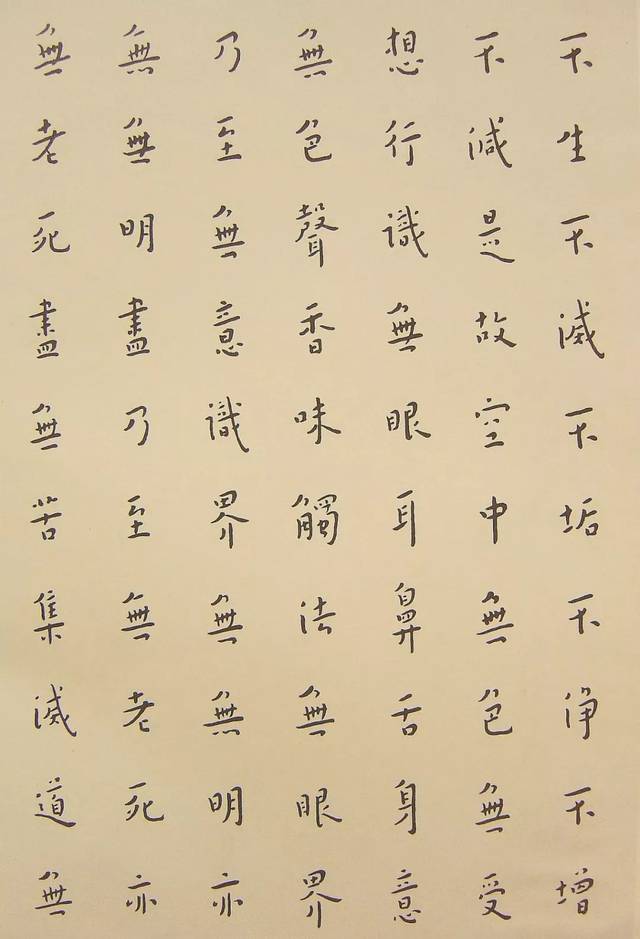 不生不滅不垢不净不增
不減是故空中無色無受
想行識無眼耳鼻舌身意
無色聲香味觸法無眼界
乃至無意識界無無明亦
無無明盡乃至無老死亦
無老死盡無苦集滅道無